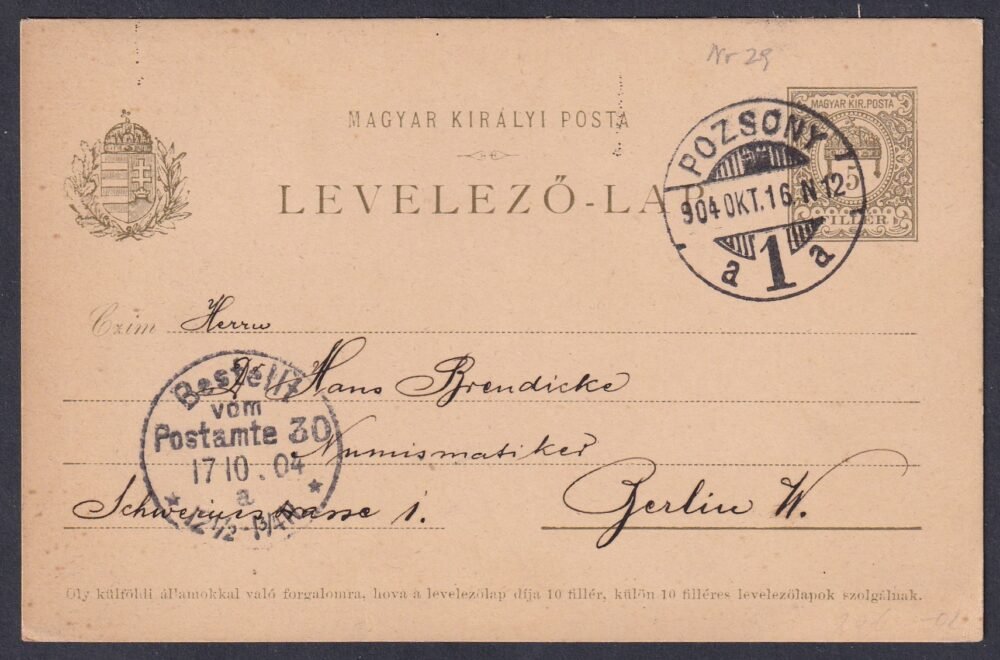 Nr 29
MAGYAR KIR. POSTA
5
FILLÉR
MAGYAR KIRÁLYI POSTA
LEVELEZŐ-LAP
POZSONY
904 OKT. 16. N 12
a 1 a
Czím Herrn
Dr Hans Brendicke
Numismatiker
Berlin W.
Schwerinstrasse 1.
Bestellt
vom
Postamte 30
17 10. 04
a
* 12 1/2 - 1 3/4 N. *
Oly külföldi államokkal való forgalomra, hova a levelezőlap díja 10 fillér, külön 10 filléres levelezőlapok szolgálnak.